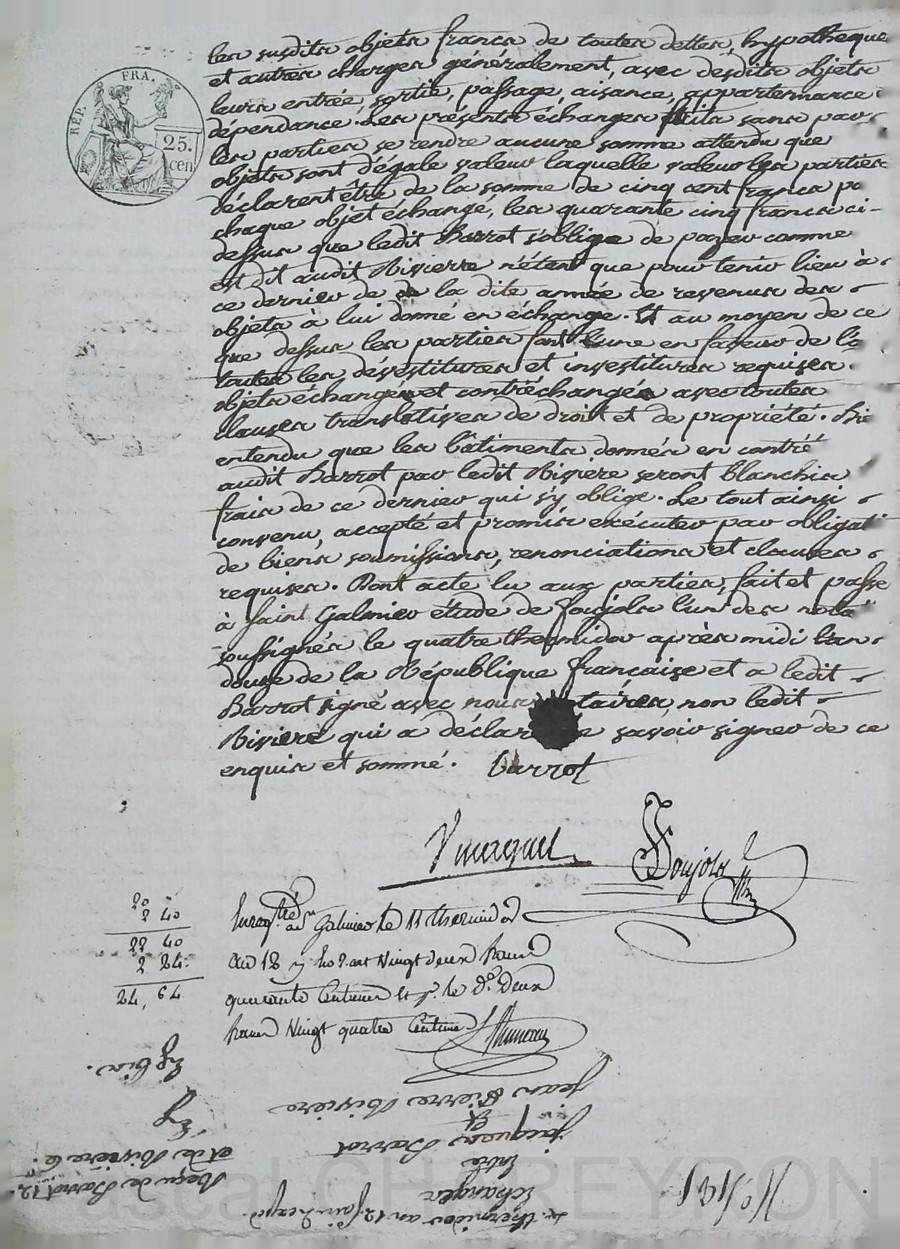 RÉP. FRA.
25. cen
les susdits objets francs de toutes dettes, hypotheque
et autres charges généralement, avec desdits objets
leurs entrée, sortie, passage, aisance, appartenance
dépendance. Les présents échanges faits sans pour
les parties se rendre aucune somme attendu que
objets sont d'égale valeur laquelle valeur les parties
déclarent être de la somme de cinq cent francs po
chaque objet échangé, les quarante cinq francs ci-
dessus que ledit Barrot s'oblige de payer comme
est dit audit Rivierre n'étant que pour tenir lieu à
ce dernier de la dite année de revenus des
objets à lui donné en échange. Et au moyen de ce
que dessus les parties font l'une en faveur de l'a
toutes les dévestitures et investitures requises.
objets échangés et contréchangés avec toutes
clauses translatives de droit et de propriété. Bie
entendu que les bâtiments donnés en contré
audit Barrot par ledit Riviere seront blanchis
frais de ce dernier qui s'y oblige. Le tout ainsi
convenu, accepté et promis exécuter par obligati
de biens soumissions, renonciations et clauses
requises. Dont acte lu aux parties, fait et passé
à Saint Galmier étude de Poujols l'un des nota
soussignés le quatre thermidor après midi l'an
douze de la République française et a ledit
Barrot signé avec nous taires, non ledit
Riviere qui a déclar e savoir signer de ce
enquis et sommé. Barrot
Poujols
20 "
2 40
22 40
2 24
24, 64
Enregtré à St Galmier le 11 thermidor
an 12 Vingt deux francs
quarante Centimes et le d. deux
francs Vingt quatre Centimes
Jean Pierre Riviere
Et
Jacques Barrot
Entre
Echanges
4 thermidor an 12
Reçu de Barrot 12
et de Riviere 6
Pascal CHAREYRON